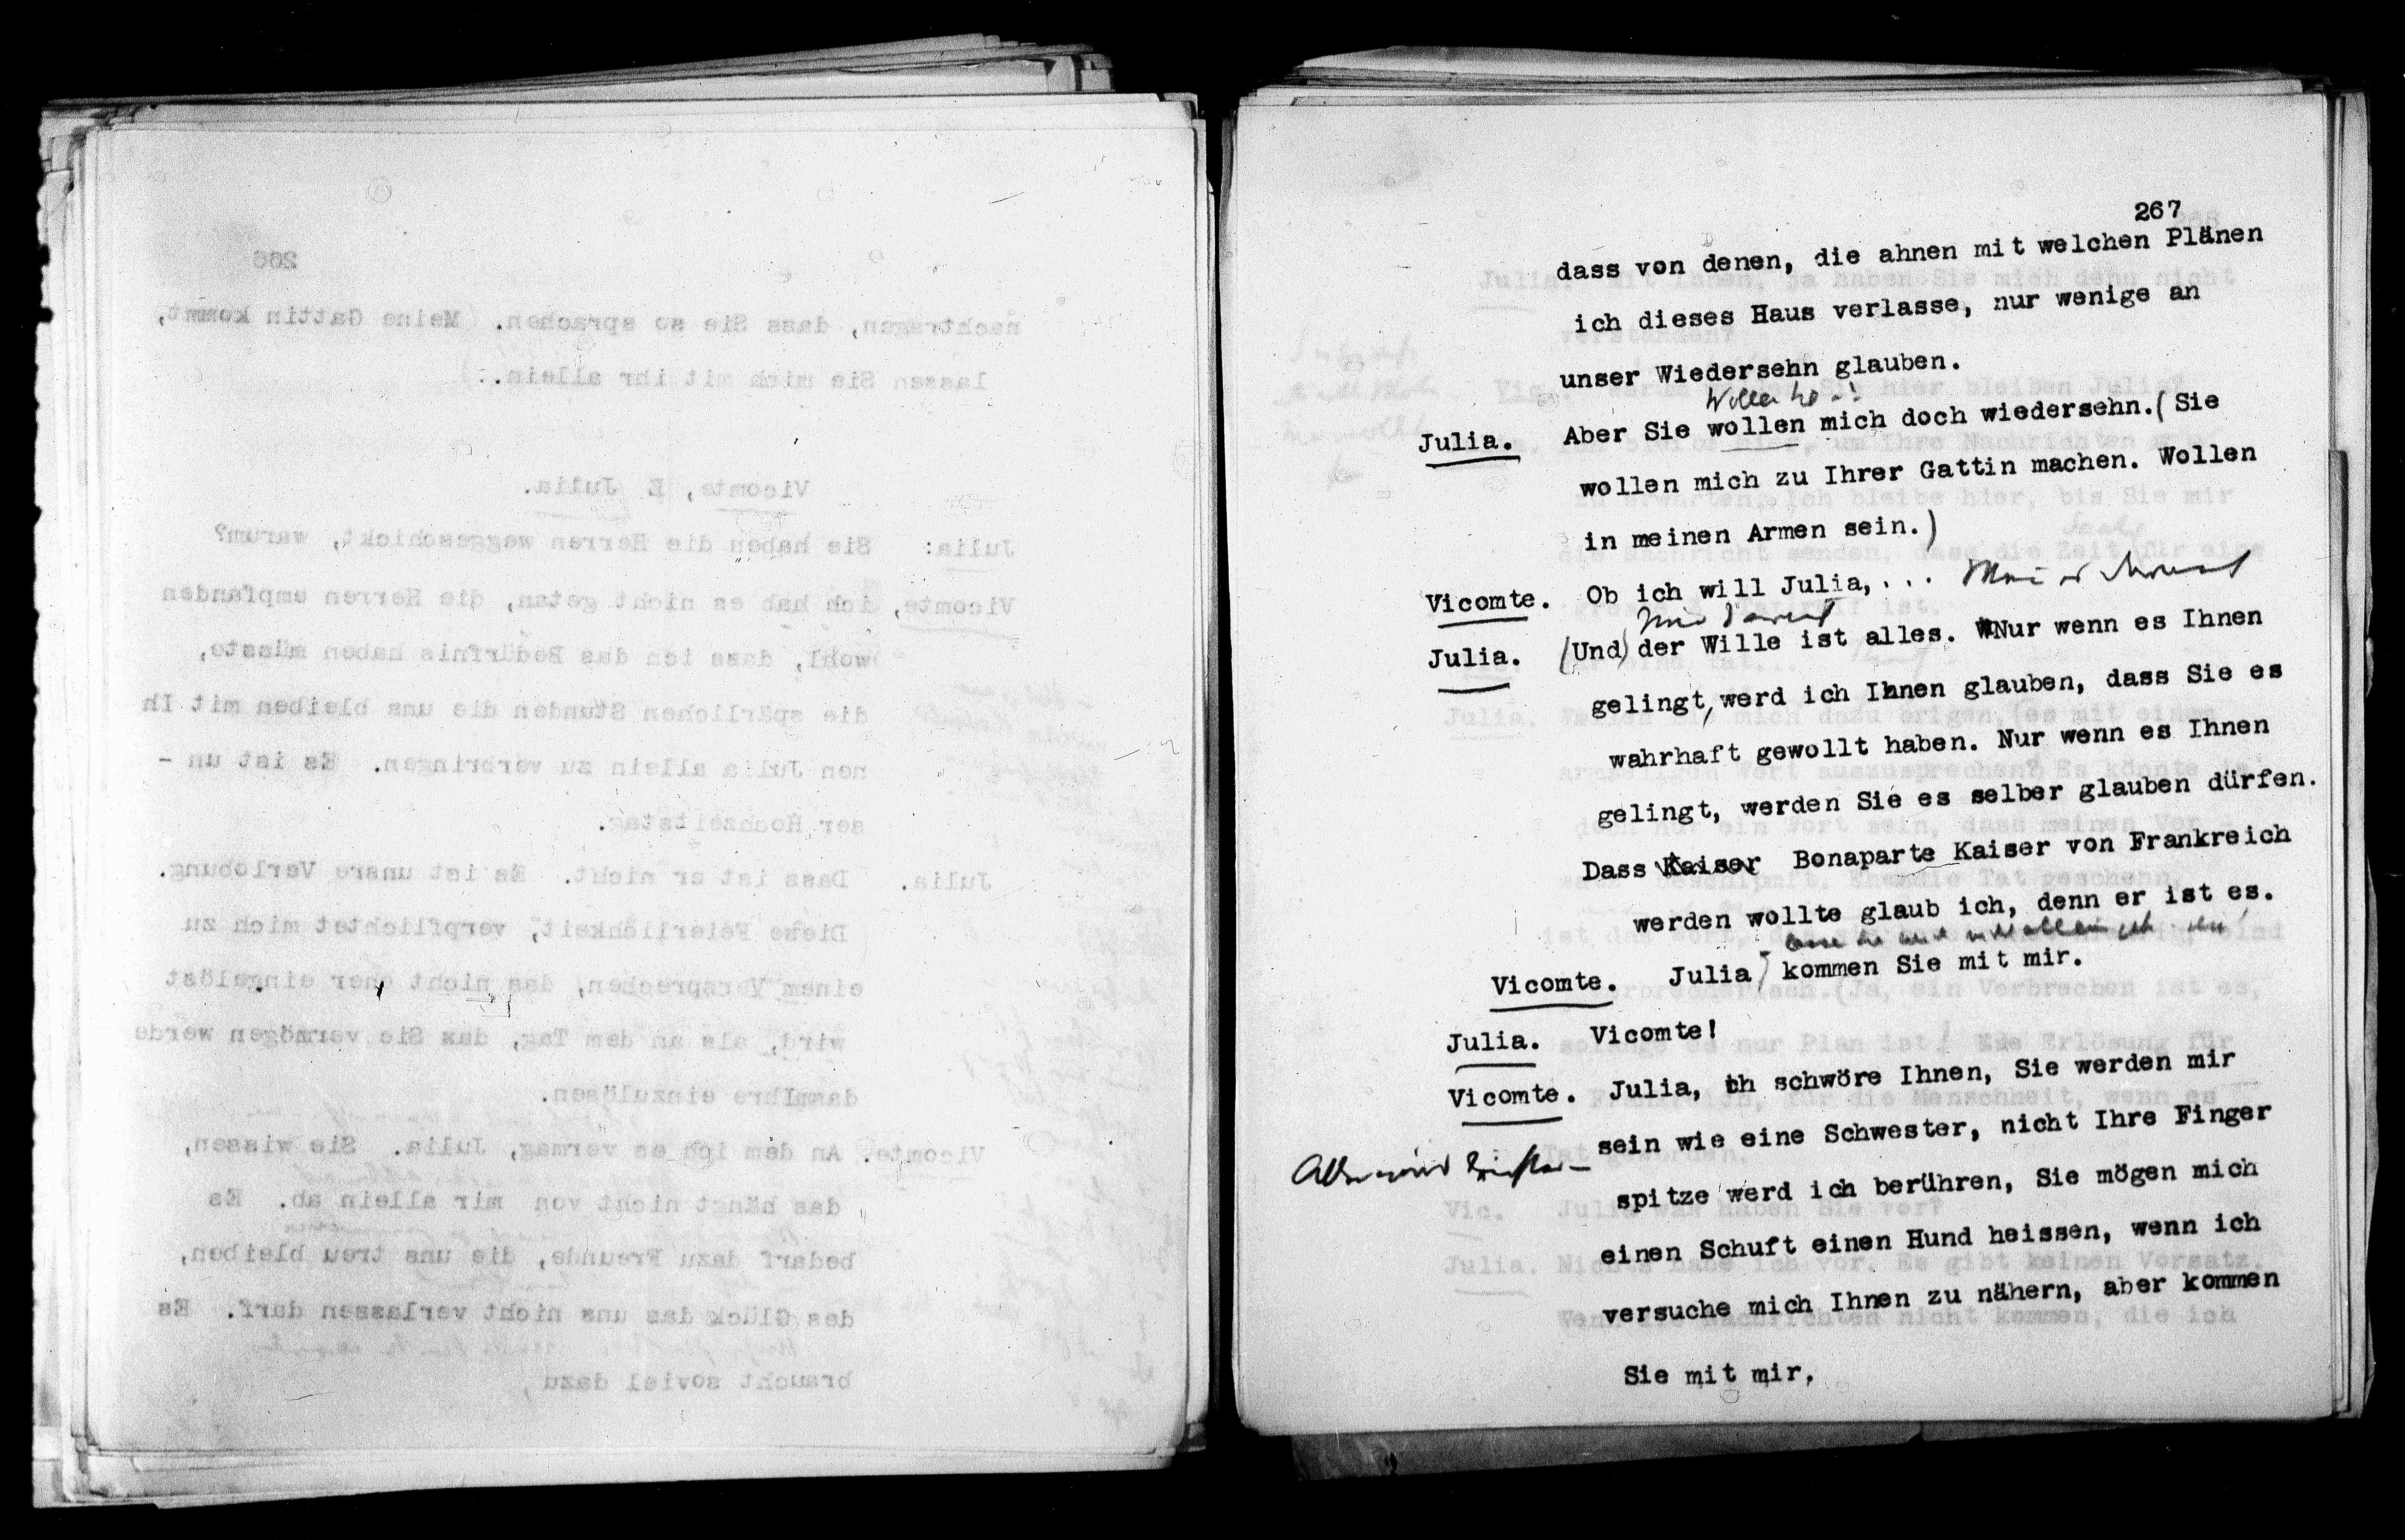 266
nachtragen, dass Sie so sprachen. (Meine Gattin kommt,
lassen Sie mich mit ihr allein.)
Vicomte, E Julia.
Julia: Sie haben die Herren weggeschickt, warum?
Vicomte, ich hab es nicht getan, die Herren empfanden
wohl, dass ich das Bedürfnis haben müsste,
die spärlichen Stunden die uns bleiben mit Ih
nen Julia allein zu verbringen. Es ist un -
ser Hochzeitstag.
Julia. Dass ist er nicht. Es ist unsre Verlobung.
Diese Feierlichkeit, verpflichtet mich zu
einem Versprechen, das nicht eher eingelöst
wird, als an dem Tag, das Sie vermögen werde
das Ihre einzulösen.
Vicomte. An dem ich es vermag, Julia. Sie wissen,
das hängt nicht von mir allein ab. Es
bedarf dazu Freunde, die uns treu bleiben,
des Glück das uns nicht verlassen darf. Es
braucht soviel dazu,
267
dass von denen, die ahnen mit welchen Plänen
ich dieses Haus verlasse, nur wenige an
unser Wiedersehn glauben.
Julia. Aber Sie wollen mich doch wiedersehn. (Sie
wollen mich zu Ihrer Gattin machen. Wollen
in meinen Armen sein.)
Vicomte. Ob ich will Julia, ...
Julia. (Und) der Wille ist alles. Nur wenn es Ihnen
gelingt, werd ich Ihnen glauben, dass Sie es
wahrhaft gewollt haben. Nur wenn es Ihnen
gelingt, werden Sie es selber glauben dürfen.
Dass Kaiser Bonaparte Kaiser von Frankreich
werden wollte glaub ich, denn er ist es.
Vicomte. Julia, kommen Sie mit mir.
Julia. Vicomte!
Vicomte. Julia, ich schwöre Ihnen, Sie werden mir
sein wie eine Schwester, nicht Ihre Finger
spitze werd ich berühren, Sie mögen mich
einen Schuft einen Hund heissen, wenn ich
versuche mich Ihnen zu nähern, aber kommen
Sie mit mir,